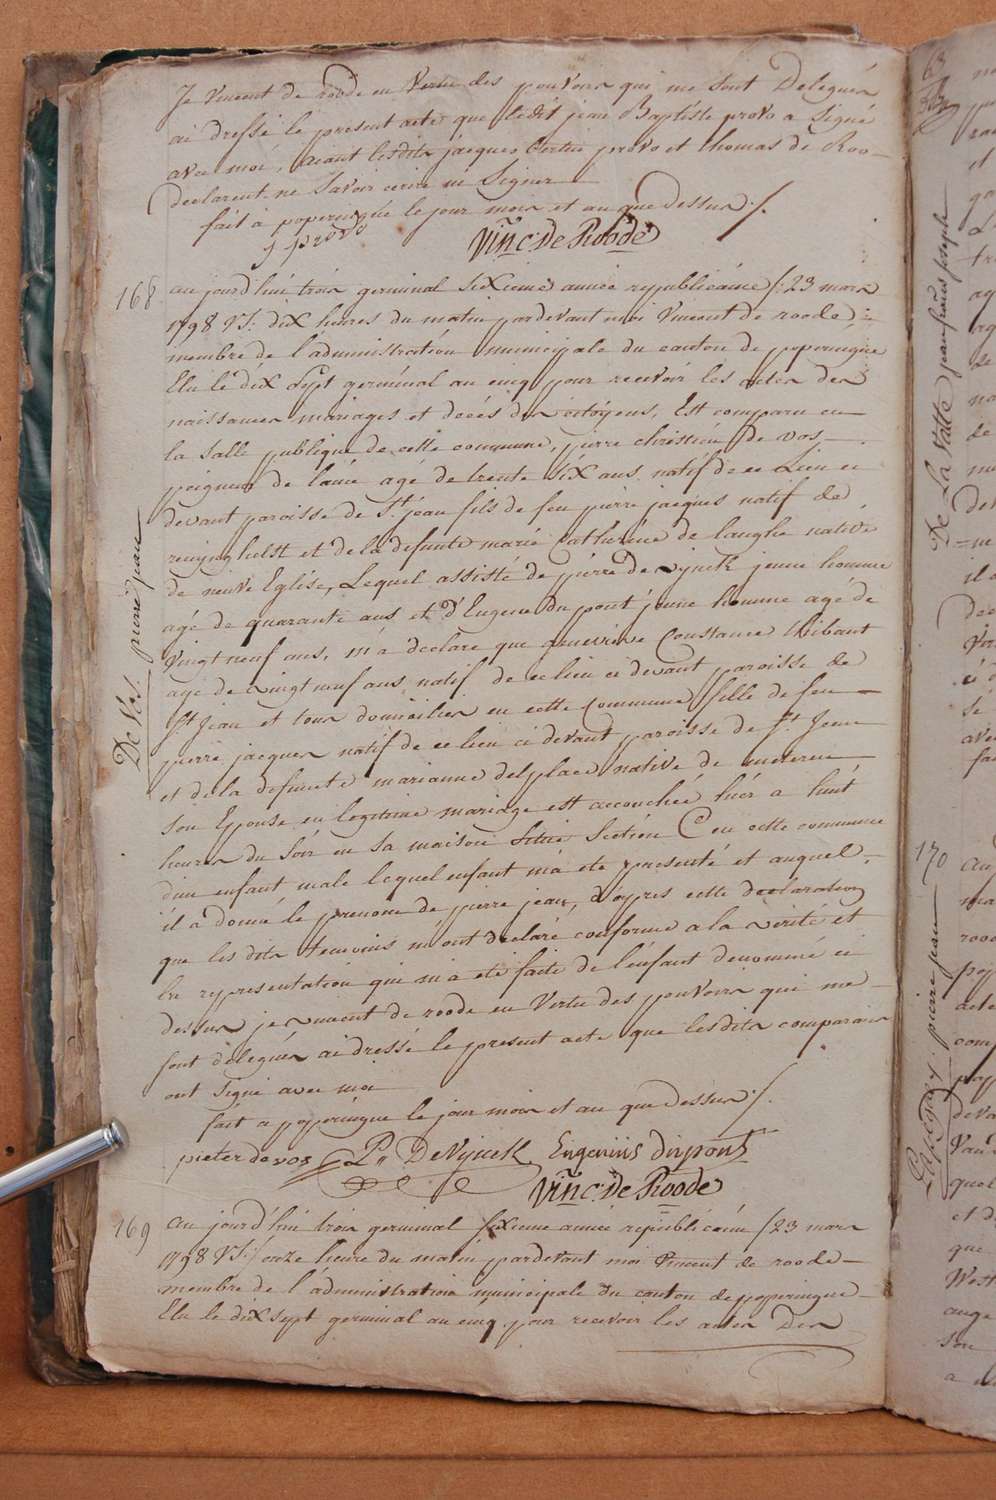 Je vincent de roode en vertu des pouvoirs qui me sont Delegués
ai dressé le present acte que ledit jean Baptiste provo a Signé
avec moi, aiant lesdits jacques provo et thomas de Roo-
declarent ne Savoir ecrire ni Signer
fait à poperingue le jour mois et an que dessus /.
j provo
Vinc: De Roode
168
au jourd'hui trois germinal sixieme année republicaine /: 23 mars
1798 VS: dix heures du matin pardevant moi Vincent de roode
membre de l'administration municipale du canton de poperingue
Elu le dix Sept germinal an cinq pour recevoir les actes des
naissances mariages et decés des citoÿens, Est comparu en
la salle publique de cette commune, pierre chretien De vos
peigneur de laine agé de trente six ans natif de ce Lieu ci
devant paroisse de St. jean fils de feu pierre jacques natif de
reninghelst et de la defunte marie Catherine de langhe native
de neuve Eglise, Lequel assisté de pierre De vÿnck jeune homme
agé de quarante ans et d'Eugene Du pont jeune homme agé de
Vingt neuf ans, m'a declaré que genevieve Constance thibaut
agé de vingt neuf ans natif de ce lieu ci devant paroisse de
St. Jean et tous domiciliés en cette commune fille de feu
pierre jacques natif de ce lieu ci devant paroisse de St. Jean
et de la defunte marianne delplace native de meteren
son Epouse en legitime mariage est accouchée hier a huit
heures du soir en sa maison Située Section C en cette commune
d'un enfant male lequel enfant m'a eté presenté et auquel
il a donné le prenom de pierre jean, d'apres cette declaration
que les dits temoins m'ont declaré conforme a la verité et
la representation qui m'a eté faite de l'enfant denommé ci
dessus je vincent de roode en Vertu des pouvoirs qui me
sont delegués ai dressé le present acte que lesdits comparans
ont signé avec moi
fait a poperingue le jour mois et an que dessus /.
pieter de vos P. DeVÿnck Eugeniüs düpont
Vinc: De Roode
De Vos. pierre jean
169
au jourd'hui trois germinal sixieme année republicaine /23 mars
1798 VS:/ onze heure du matin pardevant moi Vincent de roode
membre de l'administration municipale du canton de poperingue
Elu le dix sept germinal an cinq pour recevoir les actes Des
De La Valle jean francois joseph
170
pierre jean